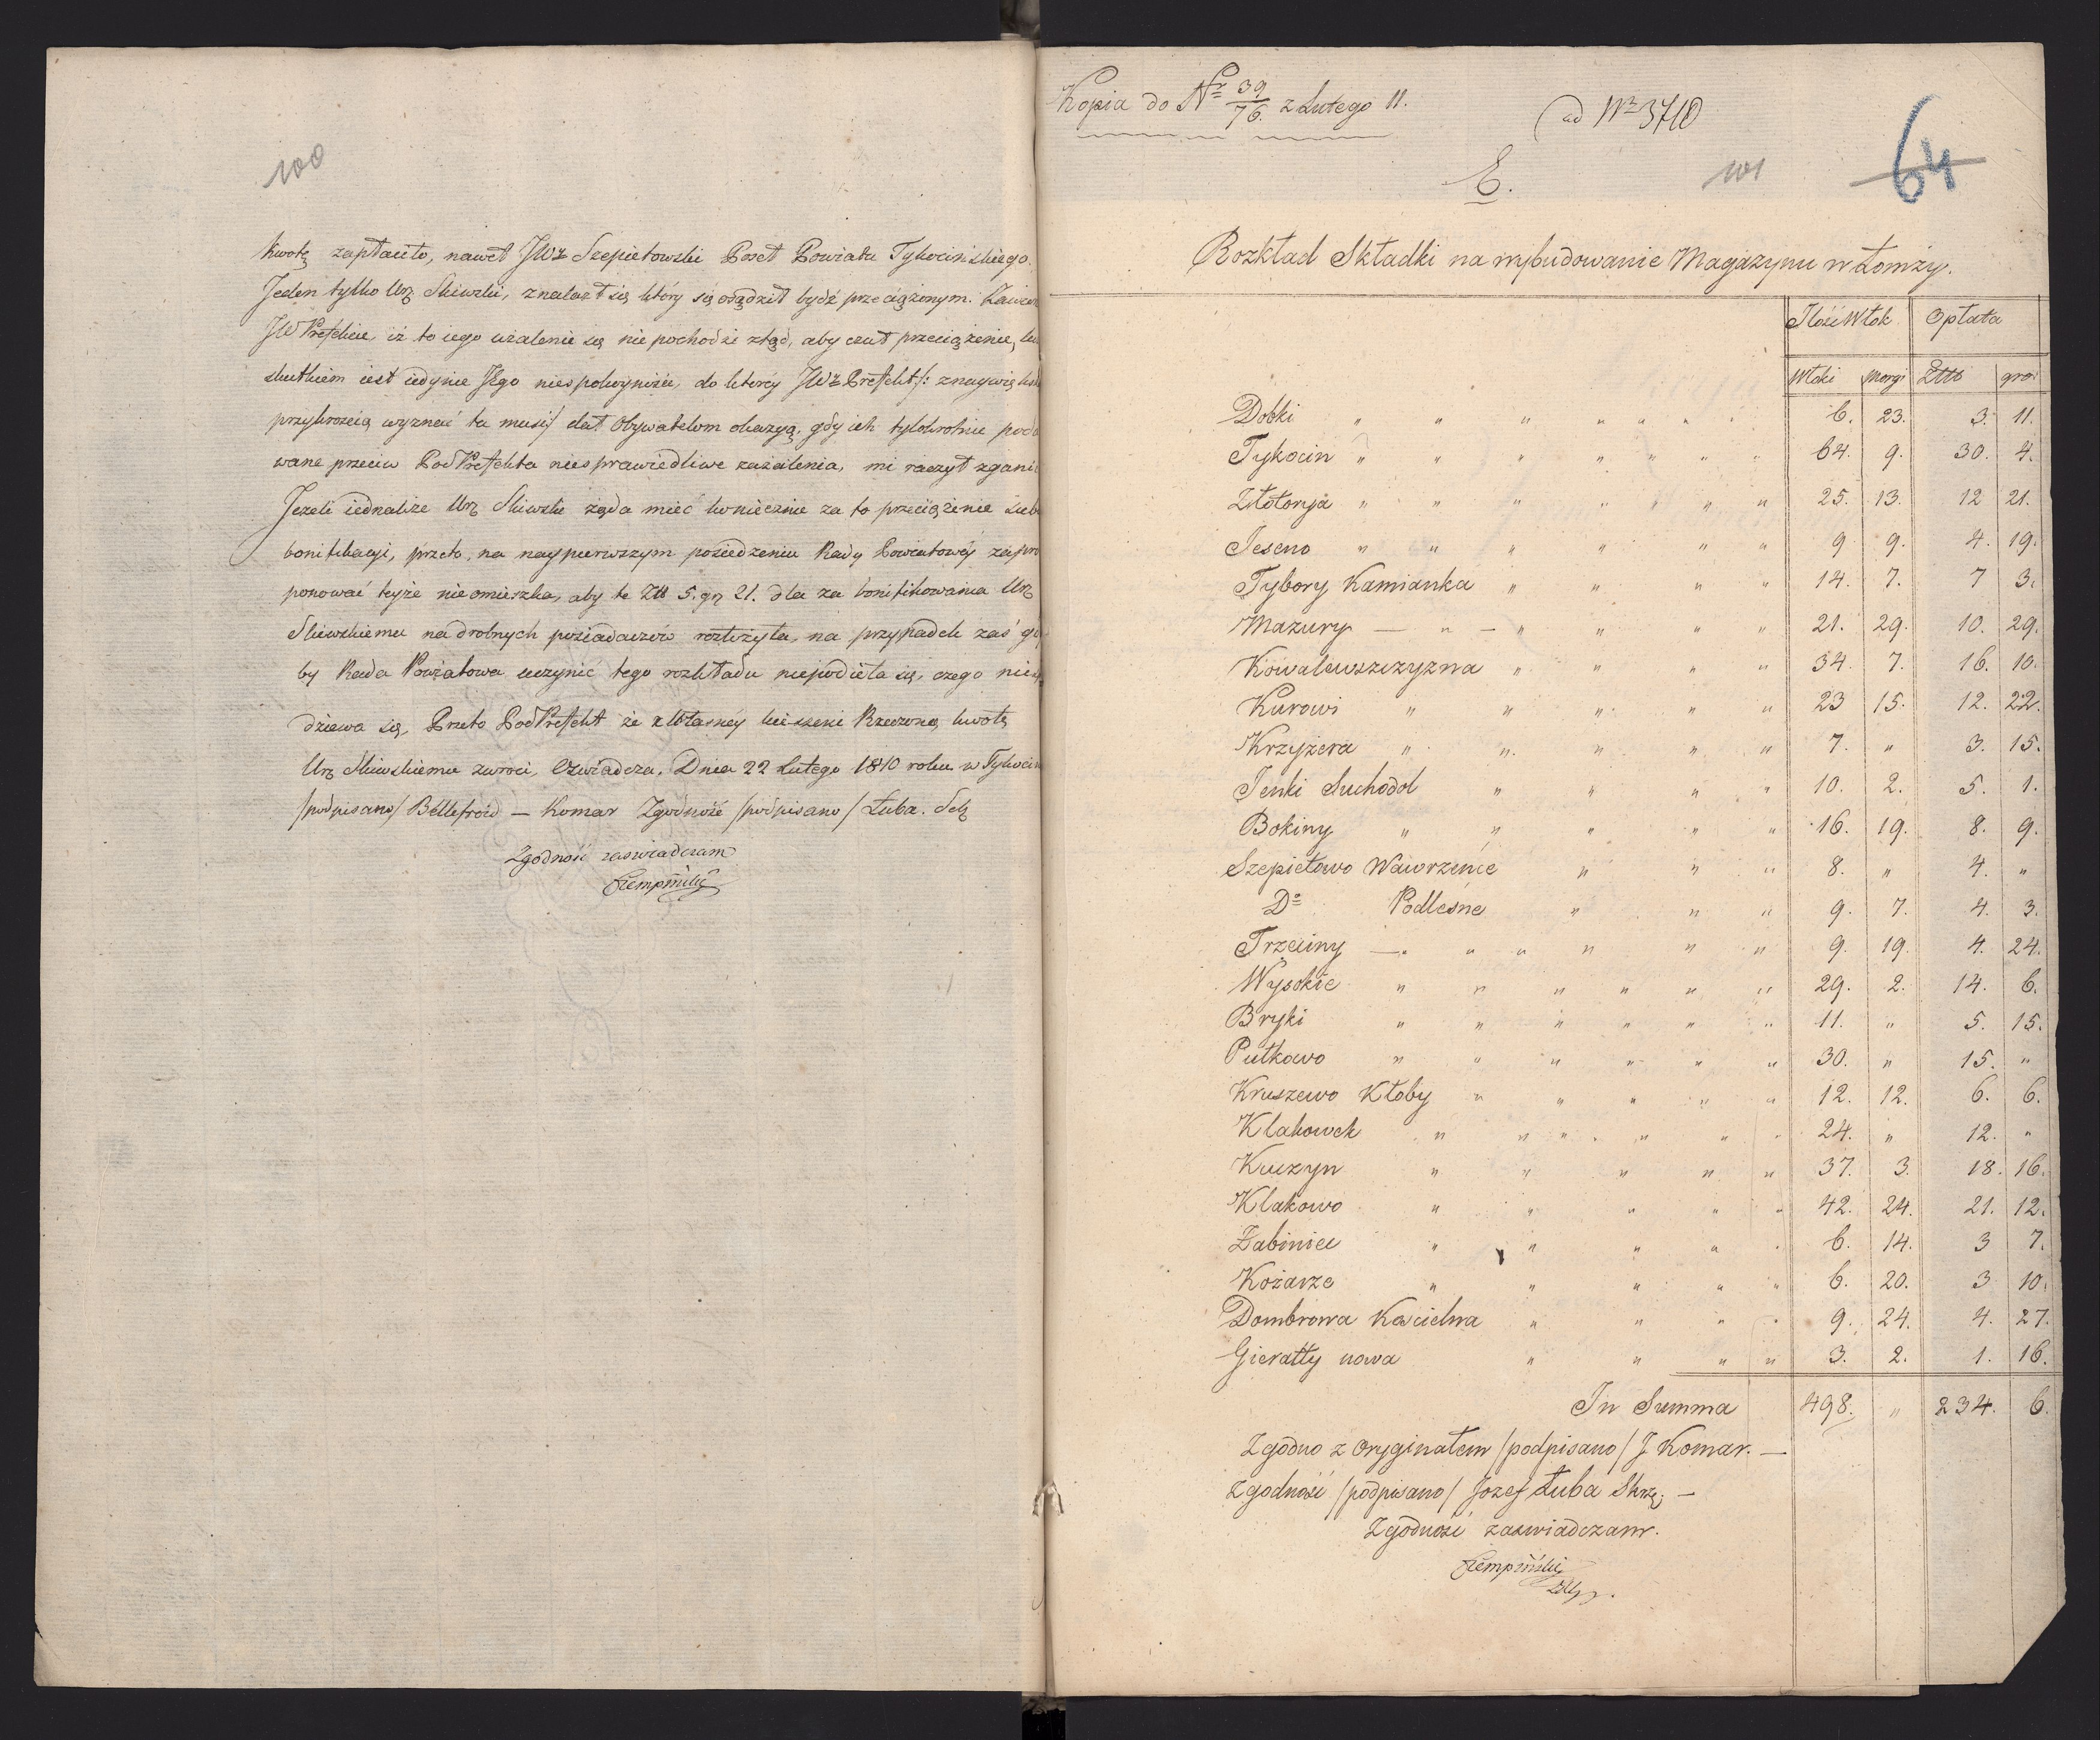 100
kwotę zapłaciło, nawet JWż Szepietowski Poseł Powiatu Tykocińskiego.
Jeden tylko Urż Sliwski, znalazł się który się osądził bydź przeciążonym.
JW Prefekcie, iż to iego użalenie się nie pochodzi ztąd, aby czuł przeciążenie,
skutkiem iest iedynie Jego niespokoyności, do którey JWż Prefekt /: znaywiększą
przykrością wyznać to musi / dał Obywatelom okazyą, gdy ich tylokrotnie poda
wane przeciw PodPrefekta niesprawiedliwe zażalenia, mi raczył zganić
Jeżeli iednakże Urż Sliwski żąda mieć koniecznie za to przeciążenie
bonifikacyi, przeto, na naypierwszym posiedzeniu Rady Powiatowéy zapro
ponować teyże nieomieszka, aby te Złł 5. gr 21. dla za bonifikowania Urż
Sliwskiemu na drobnych posiadaczów rozłożyła, na przypadek zaś gdy
by Rada Powiatowa uczynić tego rozkładu niepodięła się, czego niespo
dziewa się, Przeto PodPrefekt że z własnéy kieszeni Rzeczoną kwotę
Urż Sliwskiemu zwróci, Oświadcza, Dnia 22 Lutego 1810 roku w Tykocin
/podpisano/ Bellefroid — Komar Zgodność /podpisano/ Łuba. Sek
Zgodność zaswiadczam
Kempiński
Kopia do Nr 39/76. z Lutego 11.
ad Nr 3710
E.
101
64
Rozkład Składki na wybudowanie Magazynu w Łomży.
Ilość Włok Opłata
Włóki Morgi Złłt gro:
Dobki " " " " " " 6. 23. 3. 11.
Tykocin " " " " " " 64. 9. 30. 4.
Złotorya " " " " " " 25. 13. 12 21.
Jeseno " " " " " " 9 9. 4. 19.
Tybory Kamianka " " " " 14. 7. 7 3.
Mazury — " — " " " " 21. 29. 10. 29.
Kowalewszczyzna " " " " 34. 7. 16. 10.
Kurowi " " " " " 23 15. 12. 22.
Krzyżera " " " " " 7. " 3. 15.
Jenki Suchodoł " " " " 10. 2. 5. 1.
Bokiny " " " " " 16. 19. 8. 9.
Szepietowo Wawrzeńce " " " 8. " 4. "
Do Podleśne " " " 9. 7. 4. 3.
Trzeciny —" " " " " " 9. 19. 4. 24.
Wysokie " " " " " " 29. 2. 14. 6.
Bryki " " " " " " 11. " 5. 15.
Pułkowo " " " " " " 30. " 15. "
Kruszewo Kłoby " " " " " 12. 12. 6. 6.
Klakowek " " " " " " 24. " 12. "
Kuczyn " " " " " 37. 3. 18. 16.
Klakowo " " " " " 42. 24. 21. 12.
Żabiniec " " " " " 6. 14. 3 7.
Kożarze " " " " " 6. 20. 3 10.
Dombrowa Kościelna " " " " 9. 24. 4. 27.
Gierałty nowa " " " " 3. 2. 1. 16.
In Summa 498. " 234. 6.
Zgodno z oryginałem /podpisano/ J Komar. —
Zgodność /podpisano/ Jozef Łuba Skrę: —
Zgodność zaswiadczam.
Kempiński